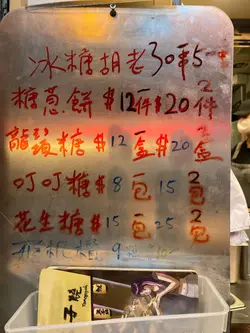 冰糖胡老30串5
糖蔥餅$12一件$20 2件
龍鬚糖$12一盒$20 2盒
叮叮糖$8一包15 2包
花生糖$15一包25 2包